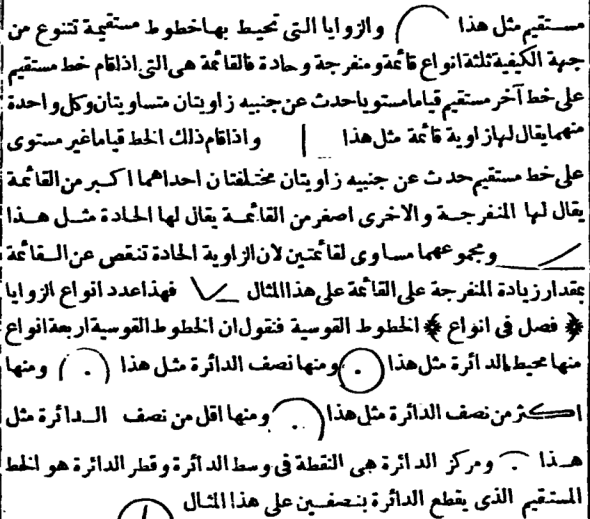 مستقيم مثل هذا والزوايا التى تحيط بها خطوط مستقيمة تتنوع من
جهة الكيفية ثلثة انواع قائمة ومنفرجة وحادة فالقائمة هى التى اذا قام خط مستقيم
على خط آخر مستقيم قياما مستويا حدث عن جنبيه زاويتان متساويتان وكل واحدة
منهما يقال لها زاوية قائمة مثل هذا واذا قام ذلك الخط قياما غير مستوى
على خط مستقيم حدث عن جنبيه زاويتان مختلفتان احداهما اكبر من القائمة
يقال لها المنفرجة والاخرى اصغر من القائمة يقال لها الحادة مثل هذا
ومجموعهما مساوى لقائمتين لان الزاوية الحادة تنقص عن القائمة
بمقدار زيادة المنفرجة على القائمة على هذا المثال فهذا عدد انواع الزوايا
﴿ فصل فى انواع ﴾ الخطوط القوسية فنقول ان الخطوط القوسية اربعة انواع
منها محيط الدائرة مثل هذا ومنها نصف الدائرة مثل هذا ومنها
اكثر من نصف الدائرة مثل هذا ومنها اقل من نصف الدائرة مثل
هذا ومركز الدائرة هى النقطة فى وسط الدائرة وقطر الدائرة هو الخط
المستقيم الذى يقطع الدائرة بنصفين على هذا المثال